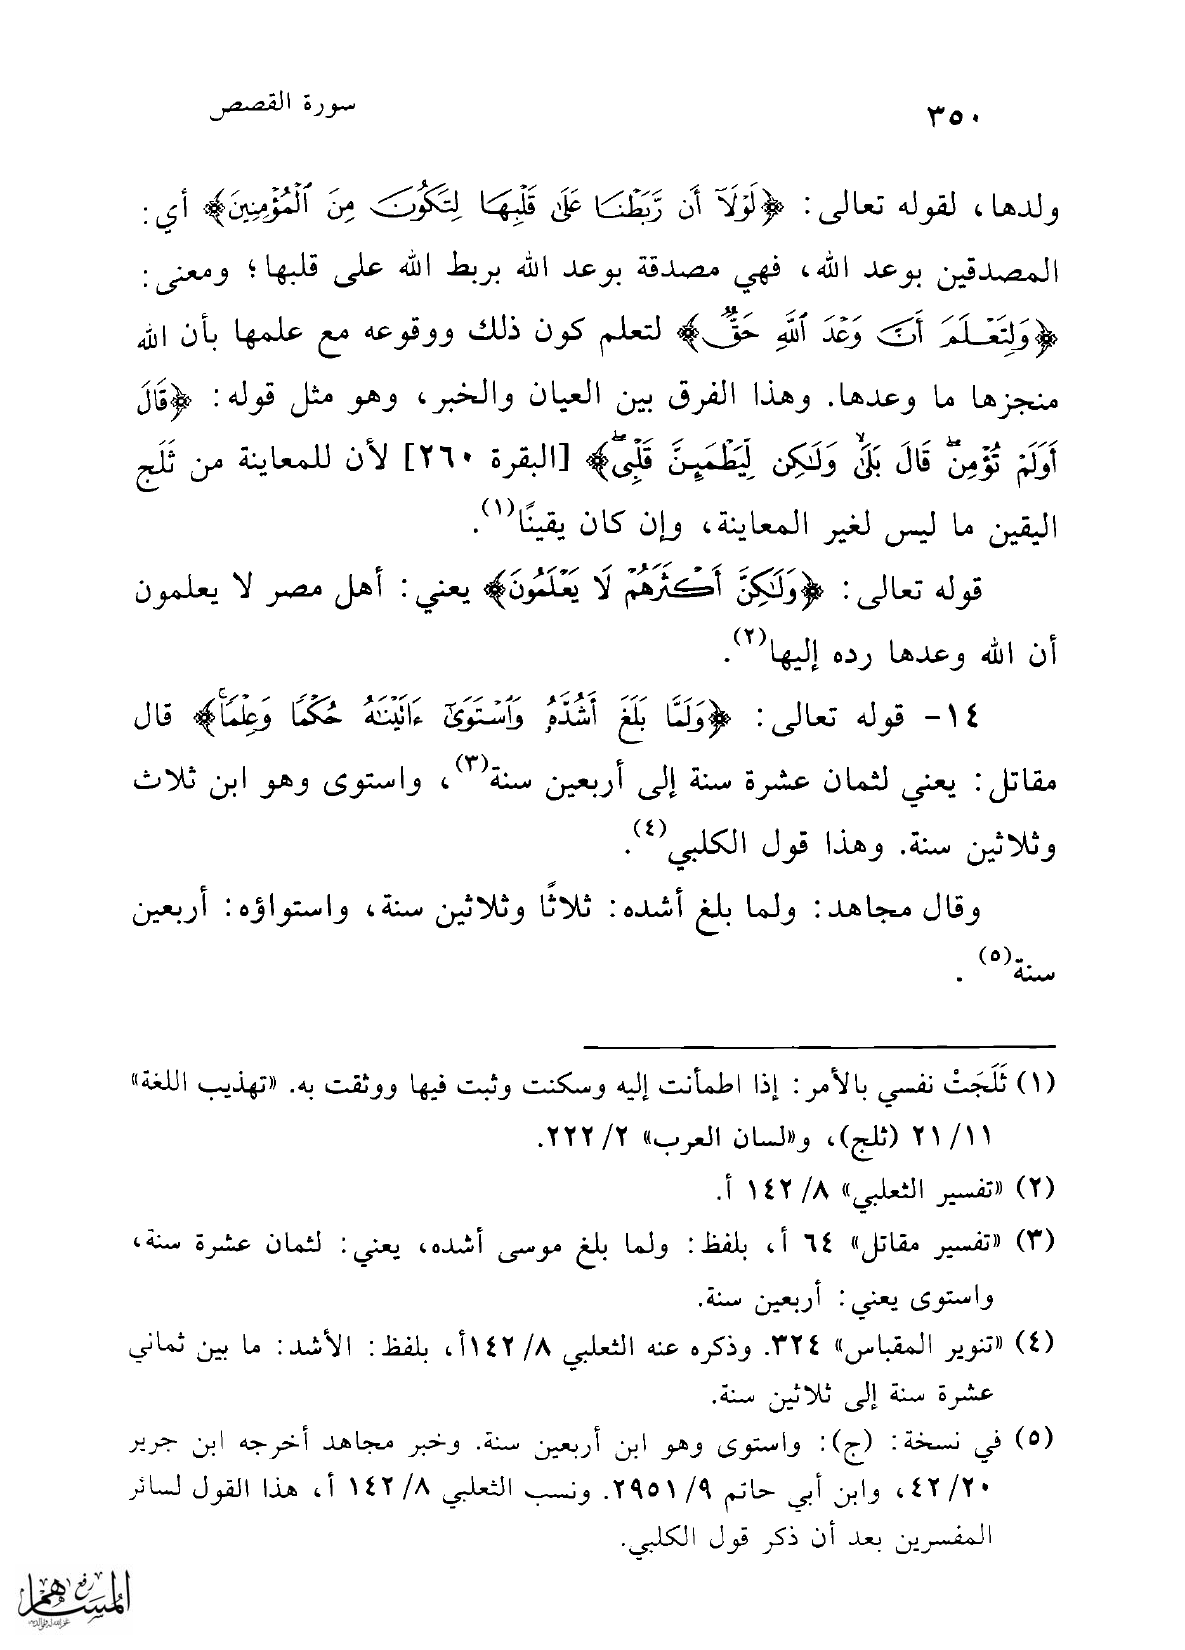 ٣٥٠
سورة القصص
ولدها، لقوله تعالى: ﴿لَوْلَآ أَن رَّبَطْنَا عَلَىٰ قَلْبِهَا لِتَكُونَ مِنَ ٱلْمُؤْمِنِينَ﴾ أي:
المصدقين بوعد الله، فهي مصدقة بوعد الله بربط الله على قلبها؛ ومعنى:
﴿وَلِتَعْلَمَ أَنَّ وَعْدَ ٱللَّهِ حَقٌّ﴾ لتعلم كون ذلك ووقوعه مع علمها بأن الله
منجزها ما وعدها. وهذا الفرق بين العيان والخبر، وهو مثل قوله: ﴿قَالَ
أَوَلَمْ تُؤْمِن ۖ قَالَ بَلَىٰ وَلَٰكِن لِّيَطْمَئِنَّ قَلْبِى ۖ﴾ [البقرة ٢٦٠] لأن للمعاينة من ثَلَج
اليقين ما ليس لغير المعاينة، وإن كان يقينًا(١).
قوله تعالى: ﴿وَلَٰكِنَّ أَكْثَرَهُمْ لَا يَعْلَمُونَ﴾ يعني: أهل مصر لا يعلمون
أن الله وعدها رده إليها(٢).
١٤- قوله تعالى: ﴿وَلَمَّا بَلَغَ أَشُدَّهُۥ وَٱسْتَوَىٰٓ ءَاتَيْنَٰهُ حُكْمًا وَعِلْمًا ۚ﴾ قال
مقاتل: يعني لثمان عشرة سنة إلى أربعين سنة(٣)، واستوى وهو ابن ثلاث
وثلاثين سنة. وهذا قول الكلبي(٤).
وقال مجاهد: ولما بلغ أشده: ثلاثًا وثلاثين سنة، واستواؤه: أربعين
سنة(٥) .
(١) ثَلَجَتْ نفسي بالأمر: إذا اطمأنت إليه وسكنت وثبت فيها ووثقت به. «تهذيب اللغة»
١١/ ٢١ (ثلج)، و«لسان العرب» ٢/ ٢٢٢.
(٢) «تفسير الثعلبي» ٨/ ١٤٢ أ.
(٣) «تفسير مقاتل» ٦٤ أ، بلفظ: ولما بلغ موسى أشده، يعني: لثمان عشرة سنة،
واستوى يعني: أربعين سنة.
(٤) «تنوير المقباس» ٣٢٤. وذكره عنه الثعلبي ٨/ ١٤٢أ، بلفظ: الأشد: ما بين ثماني
عشرة سنة إلى ثلاثين سنة.
(٥) في نسخة: (ج): واستوى وهو ابن أربعين سنة. وخبر مجاهد أخرجه ابن جرير
٢٠/ ٤٢، وابن أبي حاتم ٩/ ٢٩٥١. ونسب الثعلبي ٨/ ١٤٢ أ، هذا القول لسائر
المفسرين بعد أن ذكر قول الكلبي.